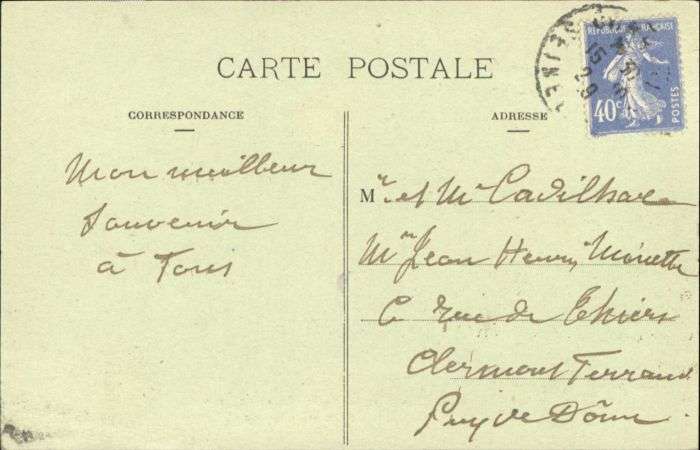 CARTE POSTALE
CORRESPONDANCE
ADRESSE
RÉPUBLIQUE FRANÇAISE
40c
POSTES
15
29
Mon meilleur
souvenir
à Tous
Mr et Me Cadilhac
Mr Jean Henri
rue de Thiers
Clermont Ferrand
Puy de Dôme